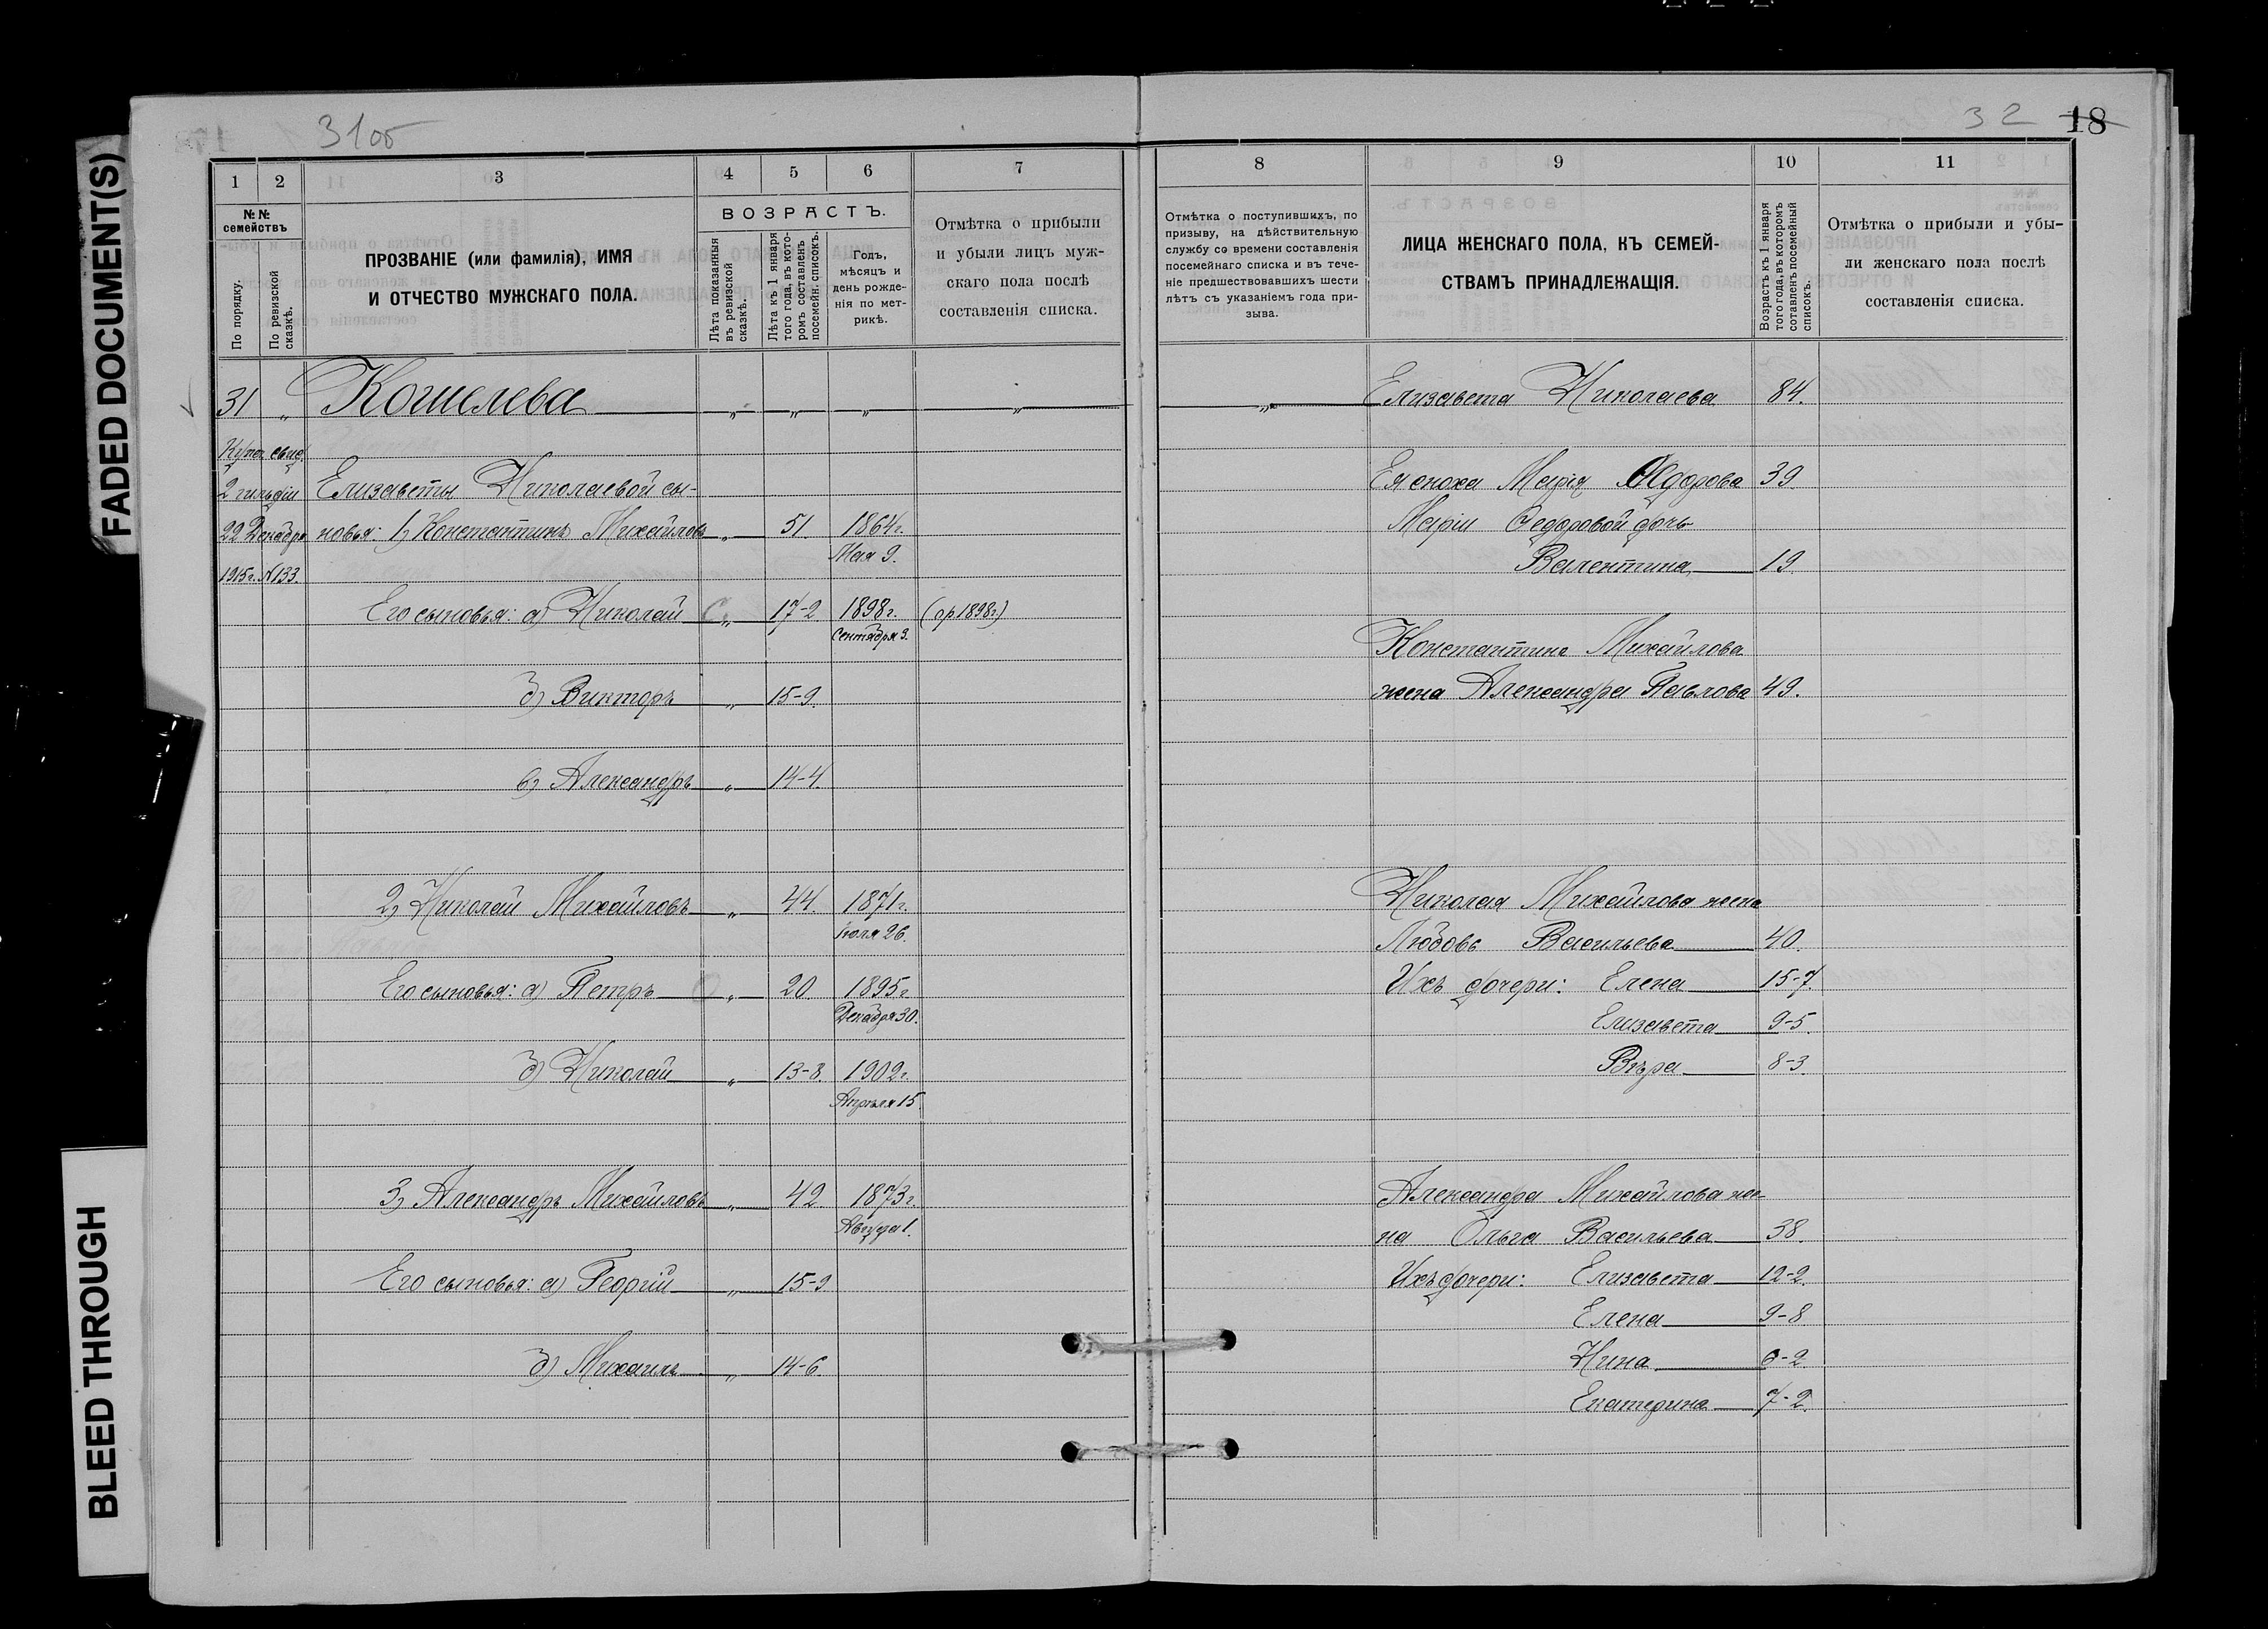 FADED DOCUMENT(S)
BLEED THROUGH
31об
1
2
3
4
5
6
7
№№ семействъ
По порядку.
По ревизской сказкѣ.
ПРОЗВАНІЕ (или фамилія), ИМЯ
И ОТЧЕСТВО МУЖСКАГО ПОЛА.
ВОЗРАСТЪ.
Лѣта показанныя
въ ревизской
сказкѣ.
Лѣта къ 1 января
того года, въ кото-
ромъ составленъ
посемейн. списокъ.
Годъ,
мѣсяцъ и
день рожде-
нія по мет-
рикѣ.
Отмѣтка о прибыли
и убыли лицъ муж-
скаго пола послѣ
составленія списка.
31 „ Кошелева „ „ „ „
Купеч. свид.
2 гильдіи Елизаветы Николаевой сы-
22 Декабря новья: 1) Константинъ Михайловъ „ 51. 1864г.
Мая 9.
1915г. №133.
Его сыновья: а) Николай „ 17-2 1898г. (пр 1898г.)
Сентября 3.
б) Викторъ „ 15-9.
в) Александръ „ 14-4.
2) Николай Михайловъ „ 44. 1871г.
Іюля 26.
Его сыновья: а) Петръ „ 20 1895г.
Декабря 30.
б) Николай „ 13-8. 1902г.
Апрѣля 15.
3) Александръ Михайловъ „ 42. 1873г.
Августа 1.
Его сыновья: а) Георгій „ 15-9
б) Михаилъ „ 14-6.
32 18
8
9
10
11
Отмѣтка о поступившихъ, по
призыву, на дѣйствительную
службу со времени составленія
посемейнаго списка и въ тече-
ніе предшествовавшихъ шести
лѣтъ съ указаніемъ года при-
зыва.
ЛИЦА ЖЕНСКАГО ПОЛА, КЪ СЕМЕЙ-
СТВАМЪ ПРИНАДЛЕЖАЩІЯ.
Возрастъ къ 1 января
того года, въ которомъ
сотавленъ посемейный
списокъ.
Отмѣтка о прибыли и убы-
ли женскаго пола послѣ
составленія списка.
„ Елизавета Николаева 84.
Ея сноха Марія Ѳедорова 39.
Маріи Ѳедоровой дочь
Валентина 19.
Константина Михайлова
жена Александра Павлова 49.
Николая Михайлова жена
Любовь Васильева 40.
Ихъ дочери: Елена 15-7.
Елизавета 9-5.
Вѣра 8-3.
Александра Михайлова же-
на Ольга Васильева 38.
Ихъ дочери: Елизавета 12-2.
Елена 9-8
Нина
Екатерина 7-2.